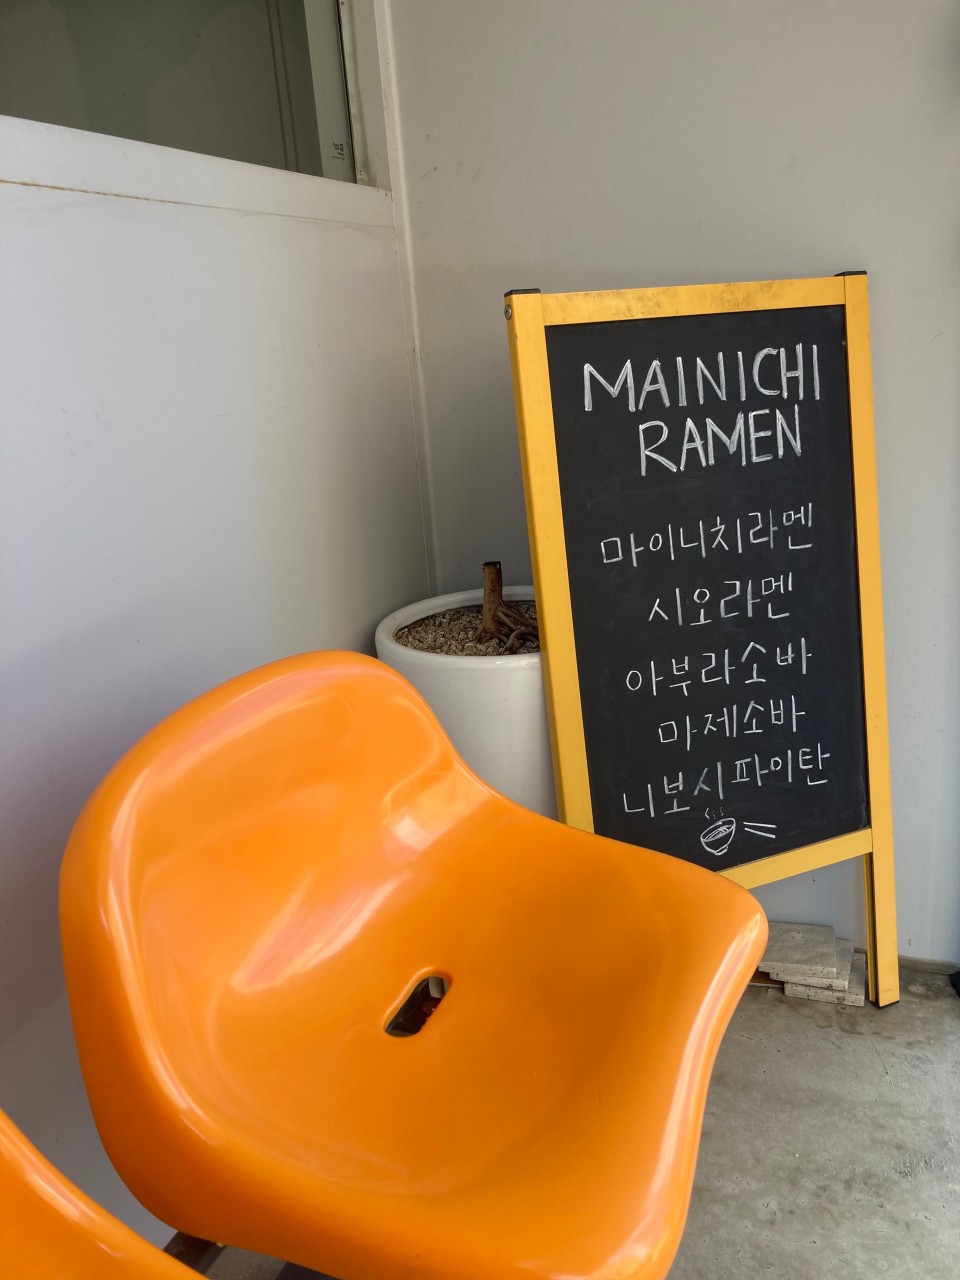 MAINICHI
RAMEN
마이니치라멘
시오라멘
아부라소바
마제소바
니보시파이탄